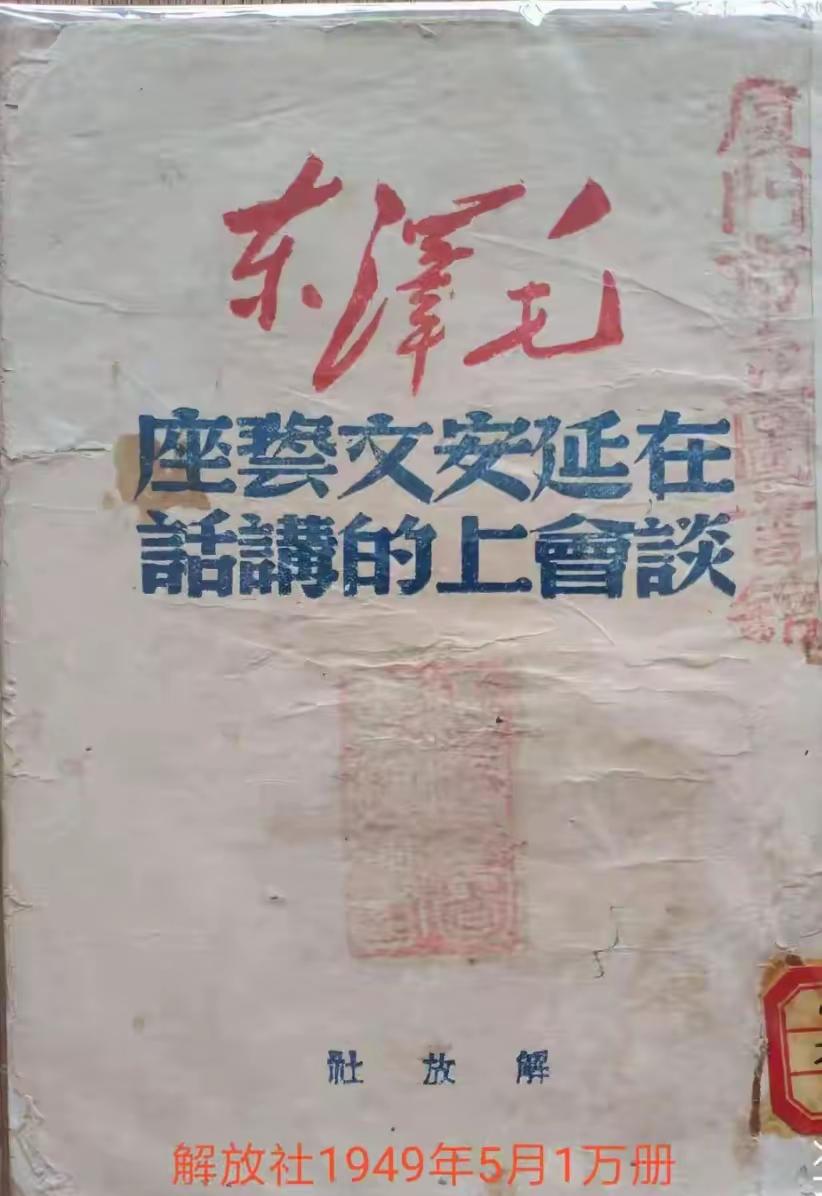 毛澤东
在延安文藝座
談會上的講話
解放社
解放社1949年5月1万册